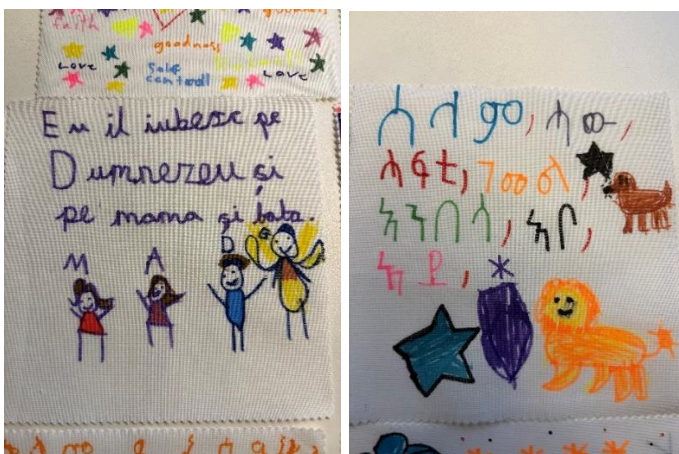 faith
goodness
Love
Self
controll
Love
Eu il iubesc pe
Dumnezeu și
pe mama și tata.
M A D G
ሰላም, ሓው,
ሓፍቲ, ገመል,
ኣንበሳ, ኣቦ,